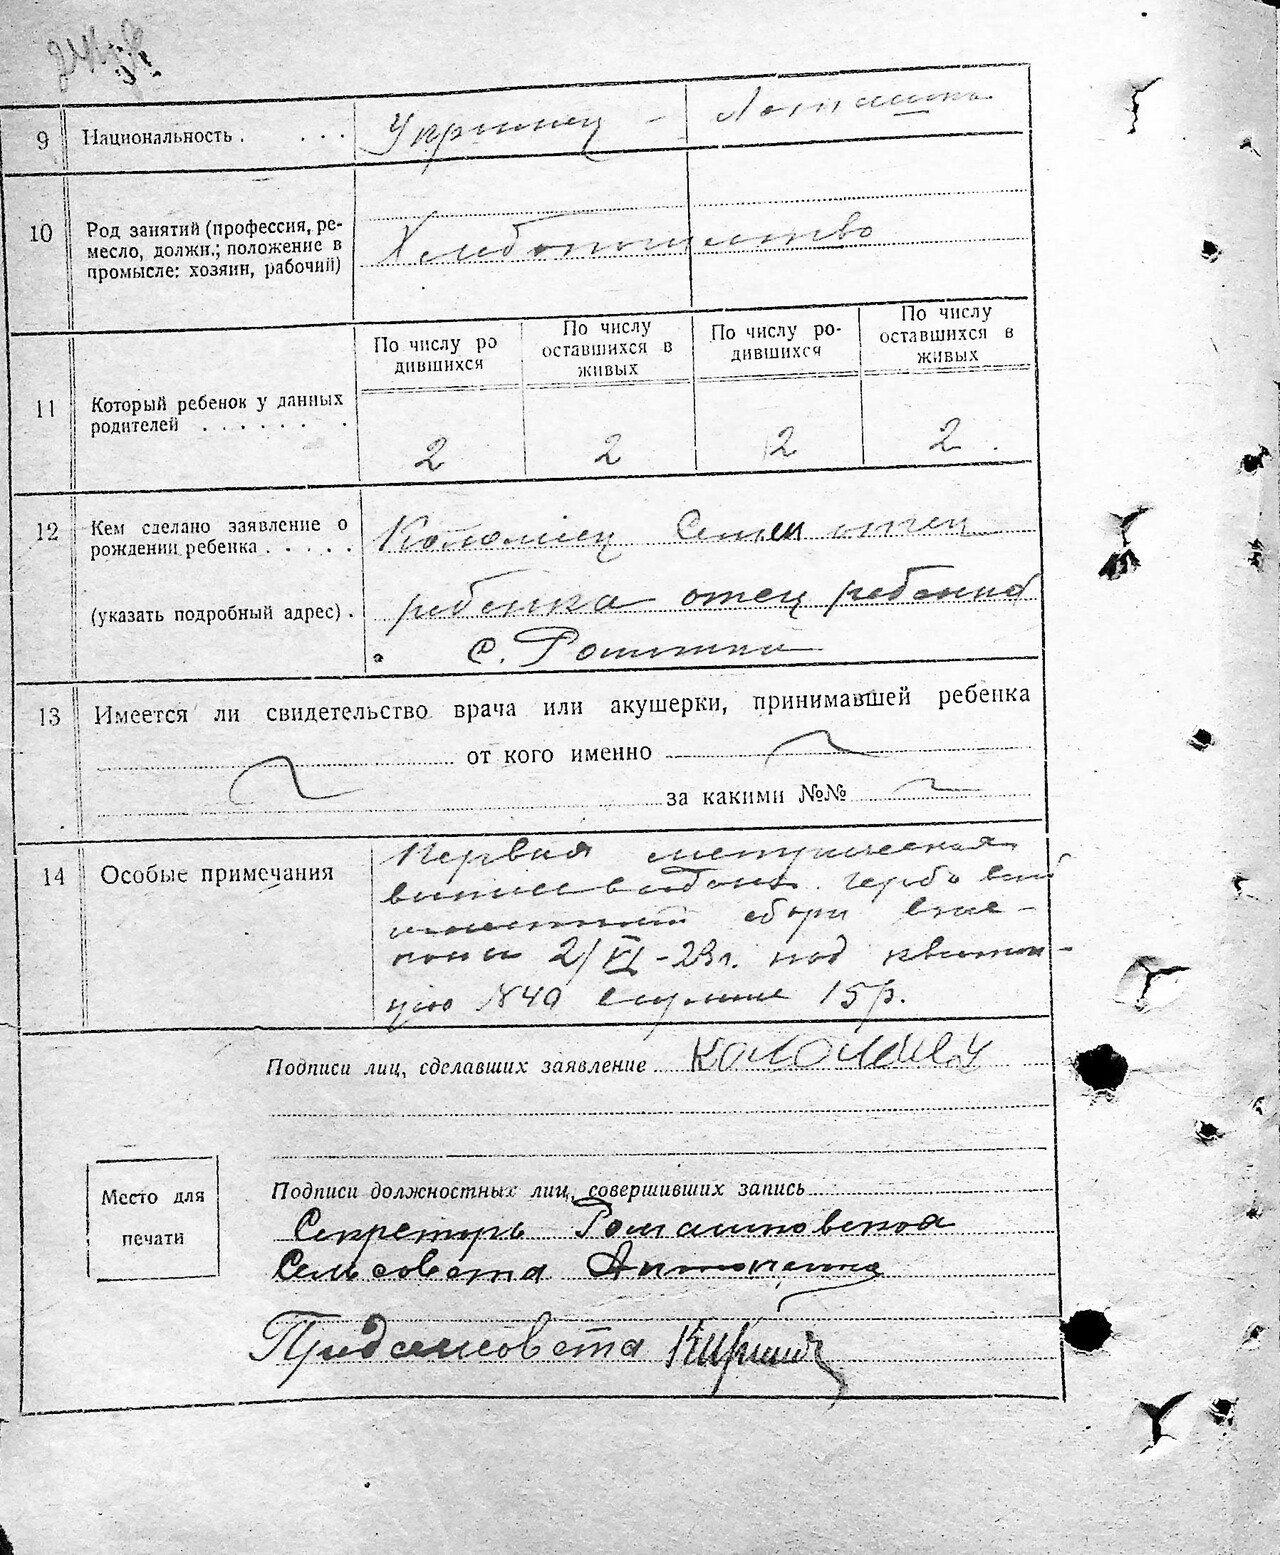 9 Национальность . . . . Укринец -
10 Род занятий (профессия, ре-
месло, должн.; положение в
промысле: хозяин, рабочий)
Хлебопашество
11 Который ребенок у данных
родителей . . . . . . .
По числу ро
дившихся
По числу
оставшихся в
живых
По числу ро-
дившихся
По числу
оставшихся в
живых
2 2 2 2
12 Кем сделано заявление о
рождении ребенка . . . . .
(указать подробный адрес) .
Коломиец Семен отец
ребенка отец ребенка
с.
13 Имеется ли свидетельство врача или акушерки, принимавшей ребенка
от кого именно
за какими №№
14 Особые примечания
Первая метрическая
сбори
2/VI-23г. под квитан-
цию №40 в сумме 15р.
Подписи лиц, сделавших заявление
Место для
печати
Подписи должностных лиц, совершивших запись
Секретарь
Сельсовета
Предсельсовета